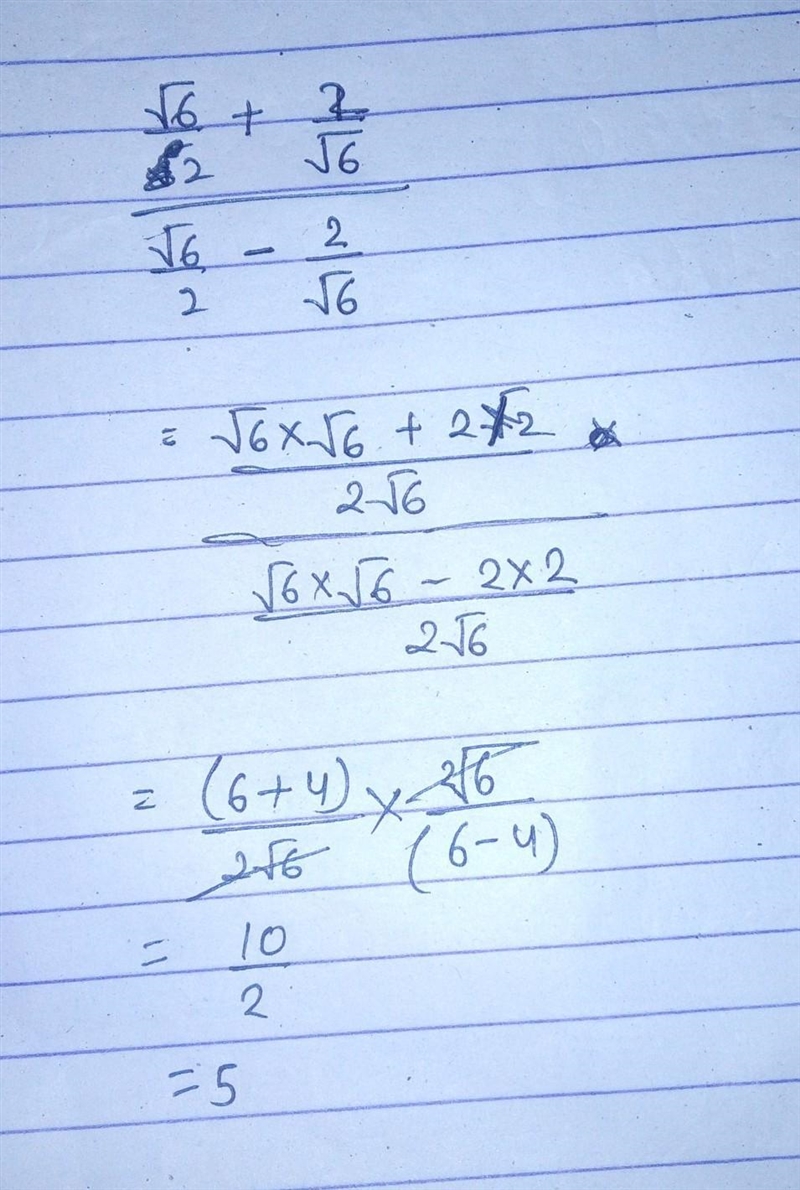 √6/2 + 2/√6
√6/2 - 2/√6
= √6 × √6 + 2 × 2
2√6
√6 × √6 - 2 × 2
2√6
= (6+4)/2√6 × 2√6/(6-4)
= 10/2
= 5